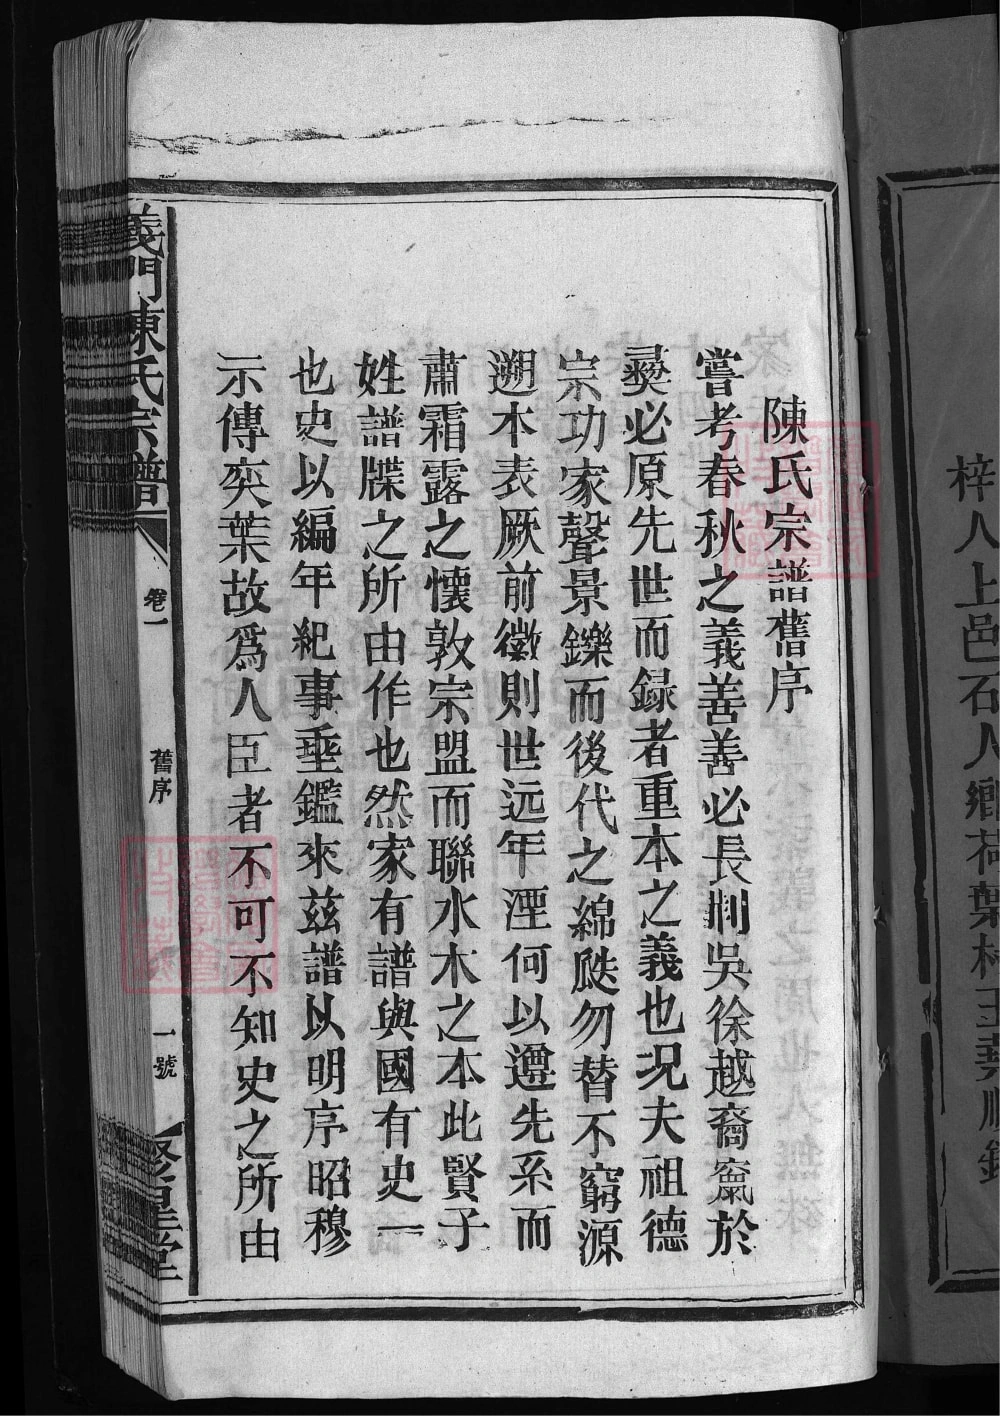 梓人上邑石人鄉荷葉村王
陳氏宗譜舊序
嘗考春秋之義善善必長荆吳徐越裔竄於
彜必原先世而録者重本之義也况夫祖德
宗功家聲景鑠而後代之綿瓞勿替不窮源
遡本表厥前徽則世远年湮何以遡先系而
肅霜露之懷敦宗盟而聯水木之本此賢子
姓譜牒之所由作也然家有譜與國有史一
也史以編年紀事垂鑑來兹譜以明序昭穆
示傳奕葉故爲人臣者不可不知史之所由
義門陳氏宗譜
卷一
舊序
一號
聚星堂